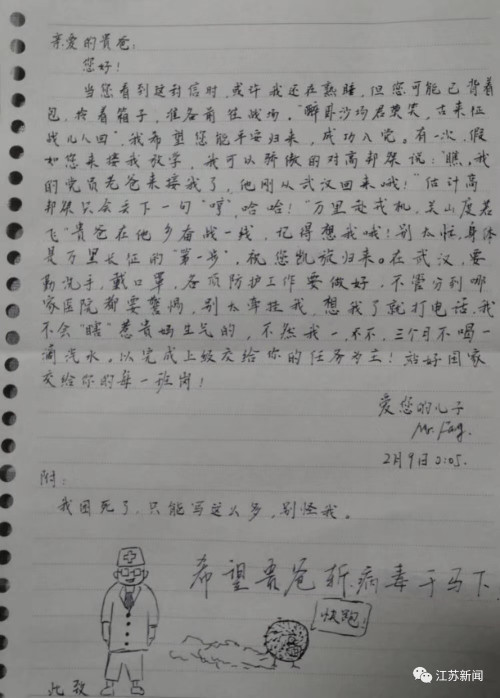 亲爱的贵爸:
您好!
当您看到这封信时,或许我还在熟睡,但您可能已背着
包,拎着箱子,准备前往战场,“醉卧沙场君莫笑,古来征
战几人回”,我希望您能平安归来,成功入党。有一次,假
如您来接我放学,我可以骄傲的对高邦祭说:“瞧,我
的党员老爸来接我了,他刚从武汉回来哦!”估计高
邦祭只会丢下一句“哼”,哈哈!“万里赴戎机,关山度若
飞”贵爸在他乡奋战一线,记得想我哦!别太忙,身体
是万里长征的“第一步”,祝您凯旋归来。在武汉,要
勤洗手,戴口罩,各项防护工作要做好,不管分到哪
家医院都要警惕,别太牵挂我,想我了就打电话,我
不会“瞎”惹贵妈生气的,不然我一,不不,三个月不喝一
滴汽水,以完成上级交给你的任务为主!站好国家
交给你的每一班岗!
爱您的儿子
Mr.Fang.
2月9日0:05.
附:
我困死了,只能写这么多,别怪我。
希望贵爸斩病毒于马下.
快跑!
此致
江苏新闻